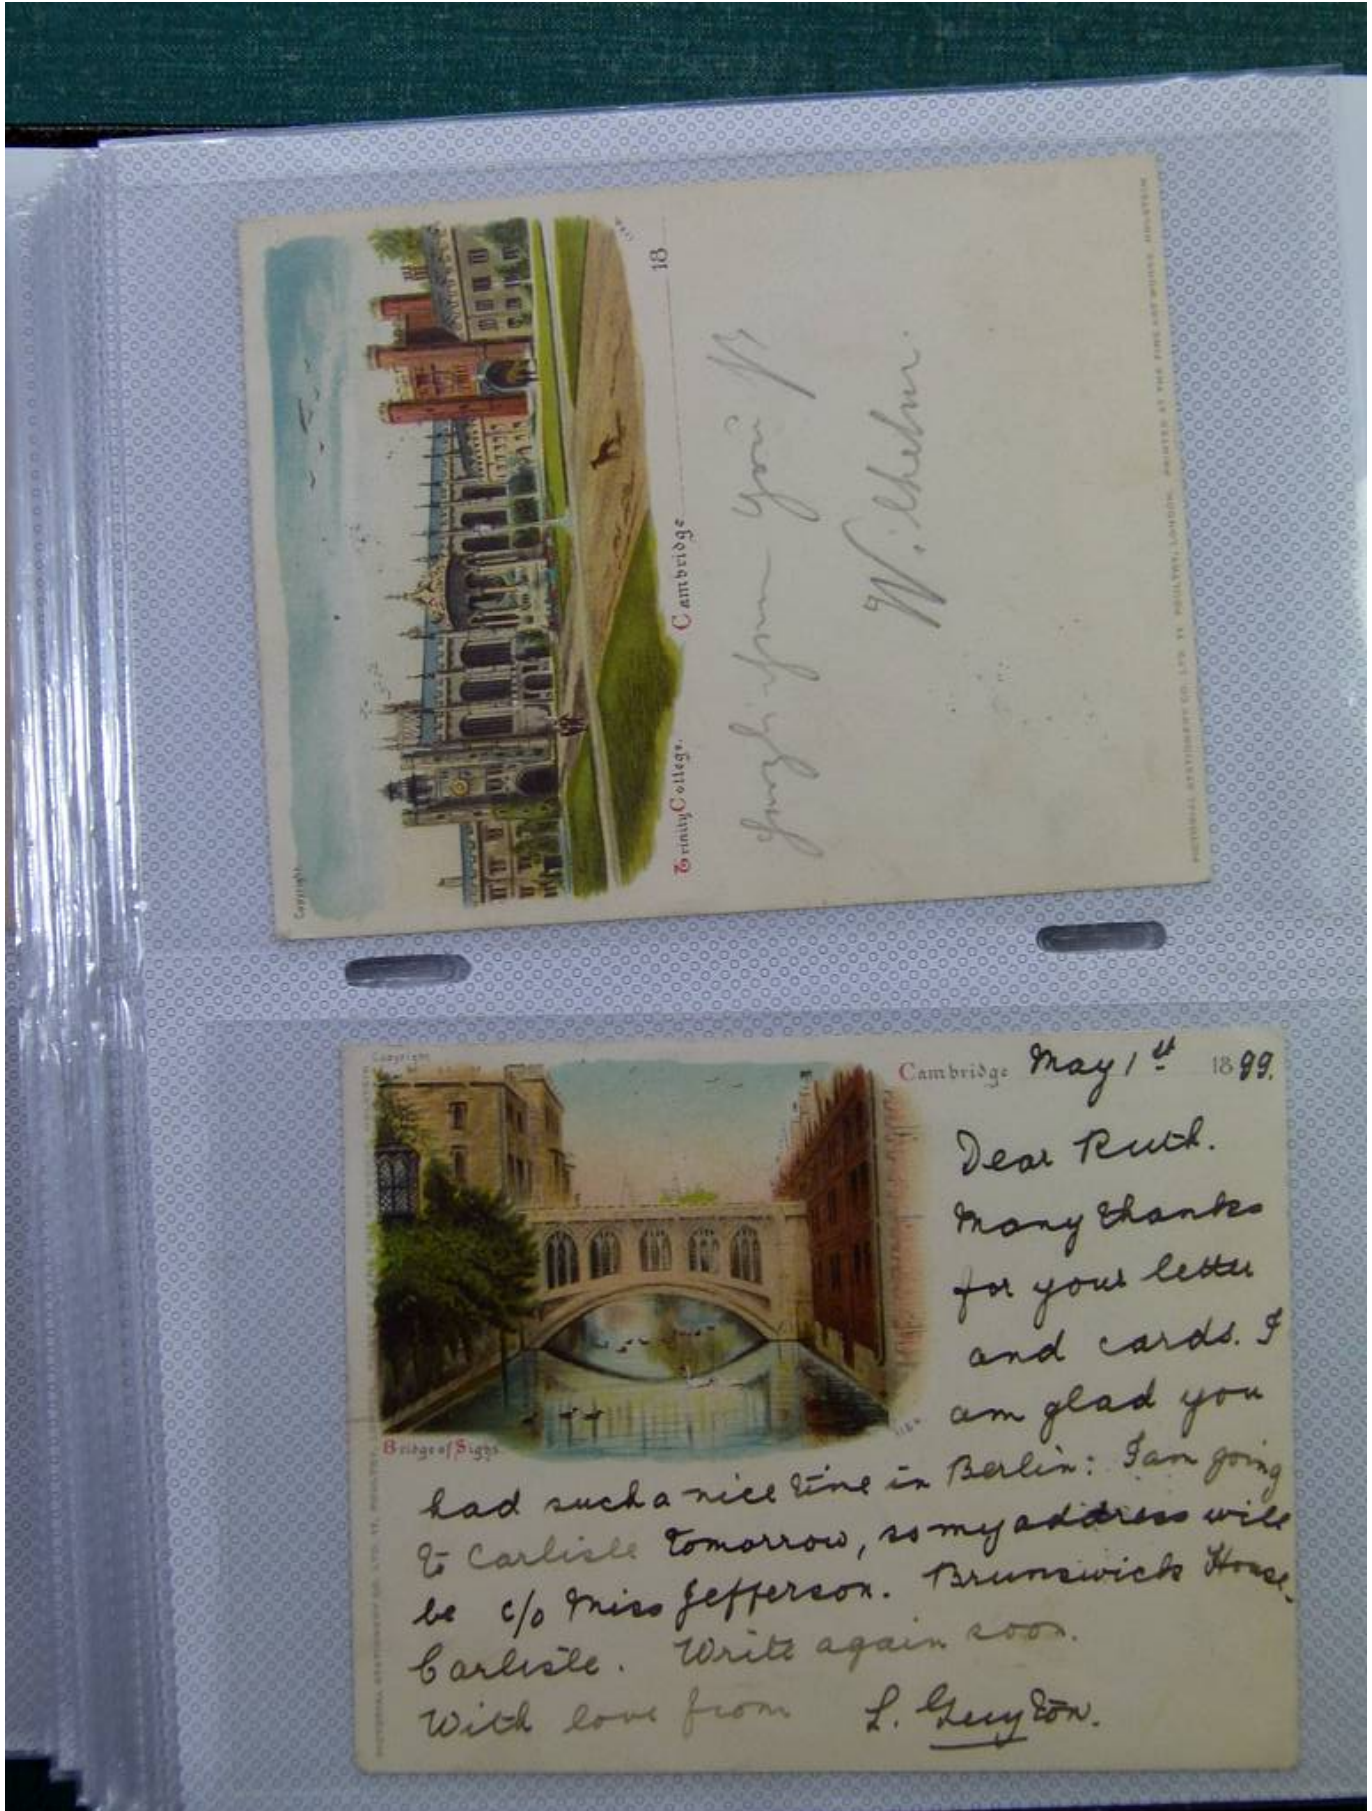 Copyright
Trinity College. Cambridge 18
from you
Wilhelm.
PICTORIAL STATIONERY CO. LTD. POULTRY, LONDON. PRINTED AT THE FINE ART WORKS, HOLSTEIN
Copyright
Cambridge May 1st 1899.
Dear Ruth.
Many thanks
for your letter
and cards. I
am glad you
Bridge of Sighs
had such a nice time in Berlin: I am going
to Carlisle tomorrow, so my address will
be c/o Miss Jefferson. Brunswick House.
Carlisle. Write again soon.
With love from L. Guyton.